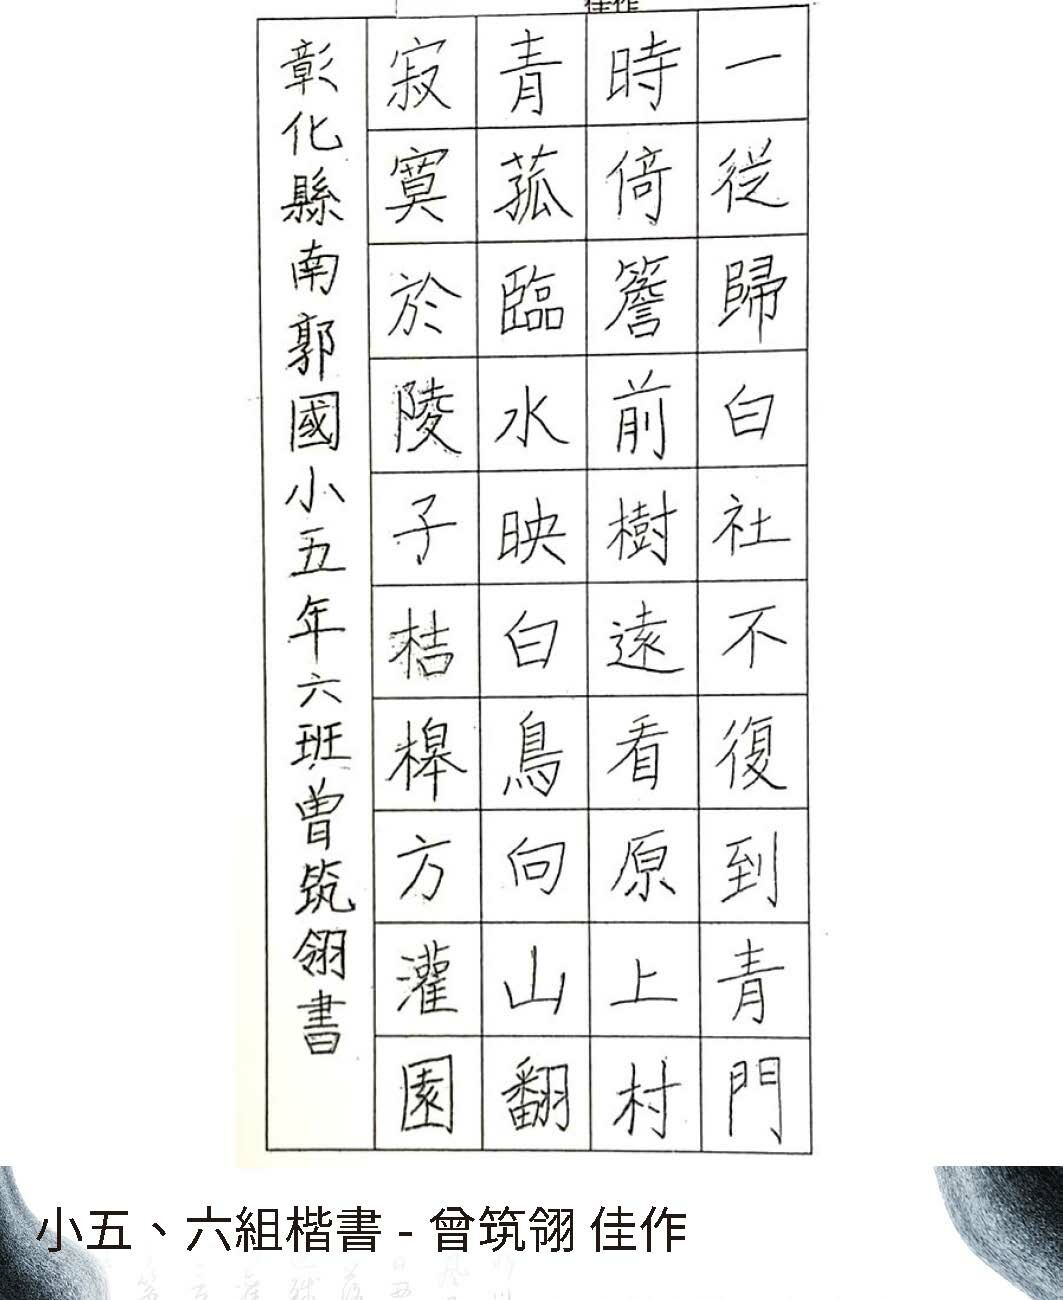 佳作
一從歸白社不復到青門
時倚簷前樹遠看原上村
青菰臨水映白鳥向山翻
寂寞於陵子桔槔方灌園
彰化縣南郭國小五年六班曾筑翎書
小五、六組楷書 - 曾筑翎 佳作